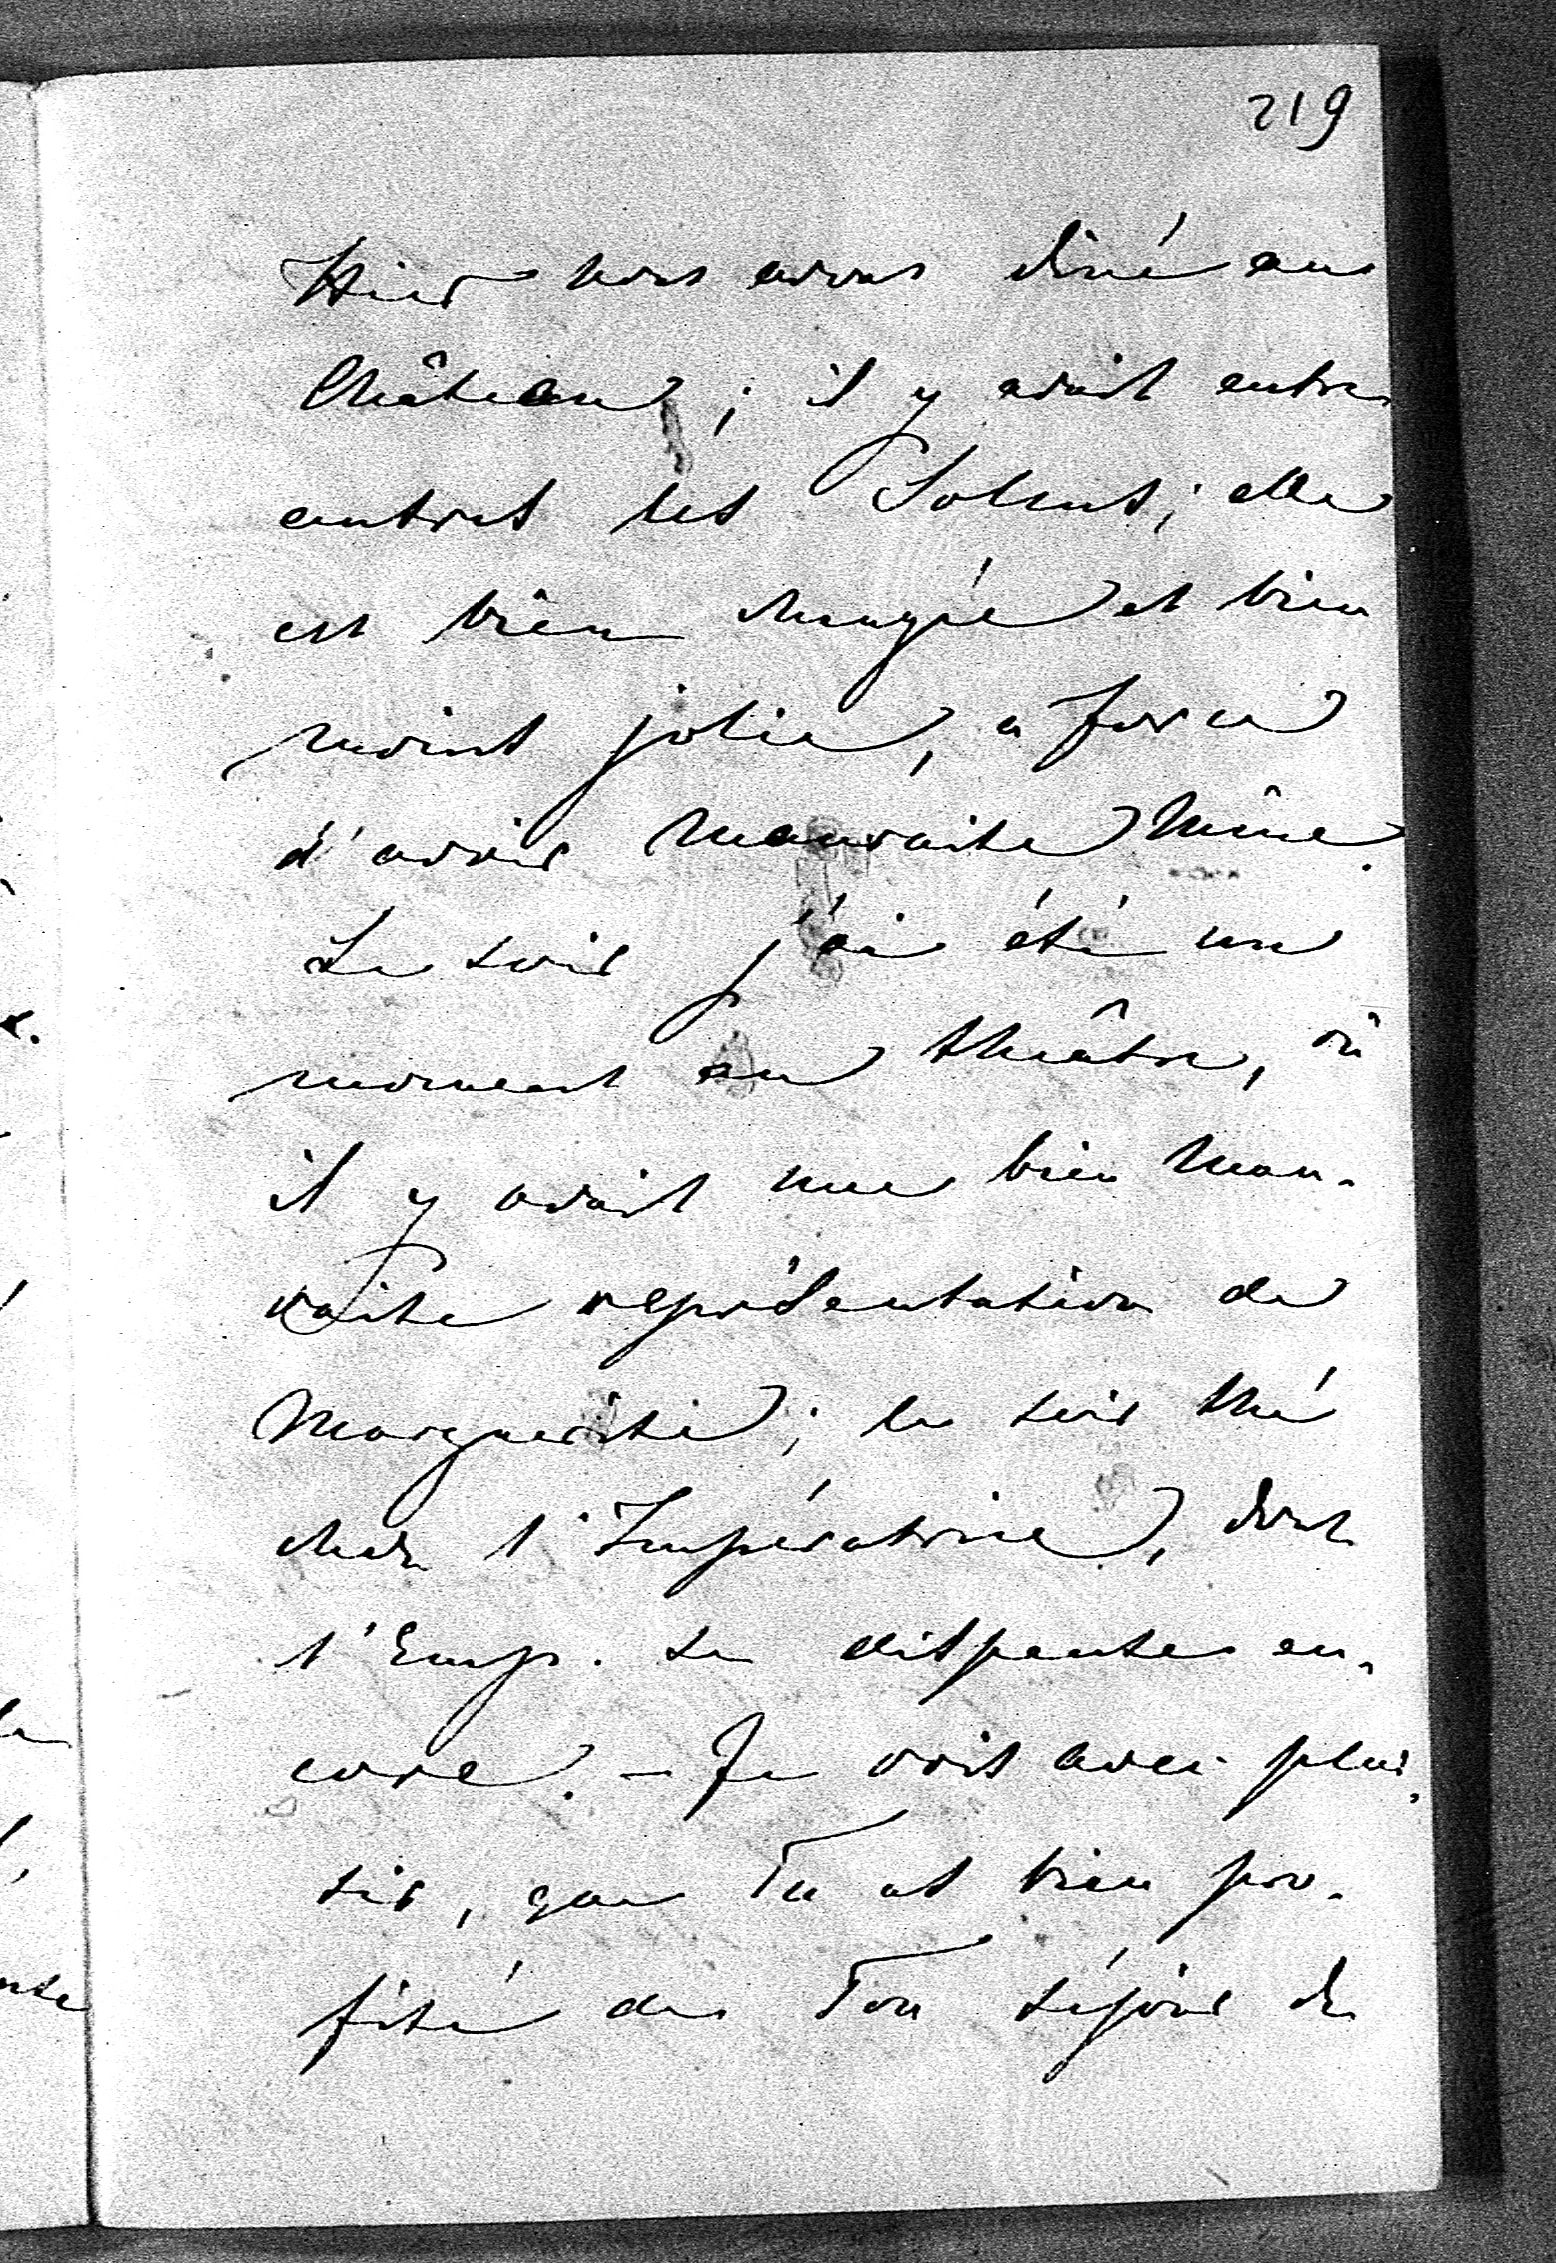 219
Hier nous avons diné au
Château; il y avait entre
autres les Solms; elle
est bien changée et bien
moins jolie, a force
d'avoir mauvaise mine.
Le soir j'ai été un
moment au théâtre, où
il y avait une bien mau-
vaise représentation de
Marguerite; le soir thé
chez l'Impératrice, dont
l'Emp. se dispense en-
core. - Je vois avec plai-
sir, que Tu as bien pro-
fité de Ton séjour de